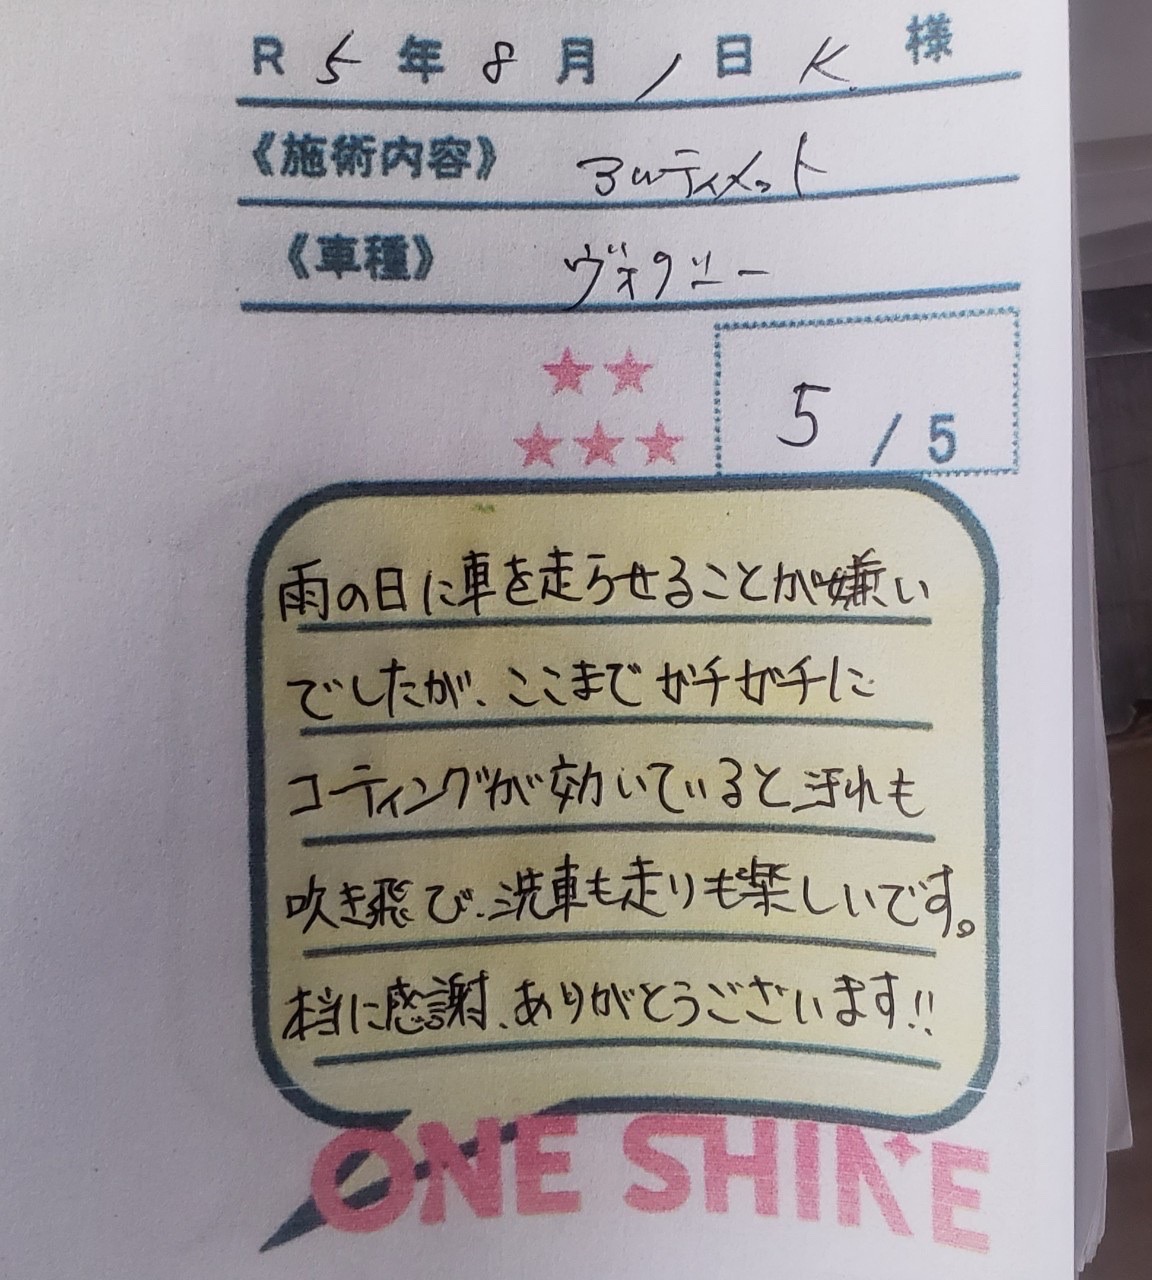 R 5 年 8 月 1 日 K. 様
《施術内容》 アルティメット
《車種》 ヴォクシー
★★
★★★ 5 / 5
雨の日に車を走らせることが嫌い
でしたが、ここまでガチガチに
コーティングが効いていると汚れも
吹き飛び、洗車も走りも楽しいです。
本当に感謝、ありがとうございます!!
ONE SHINE